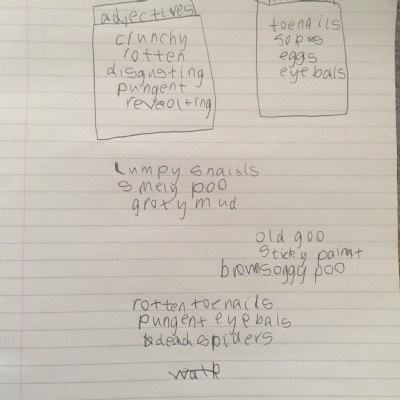 adjectives
crunchy
rotten
disgusting
pungent
reveolting
toenails
eggs
eyebals
Lumpy snaids
smely poo
groty mud
old goo
sticky paint
brown soggy poo
rotten toenails
pungent eyebals
deadspiders